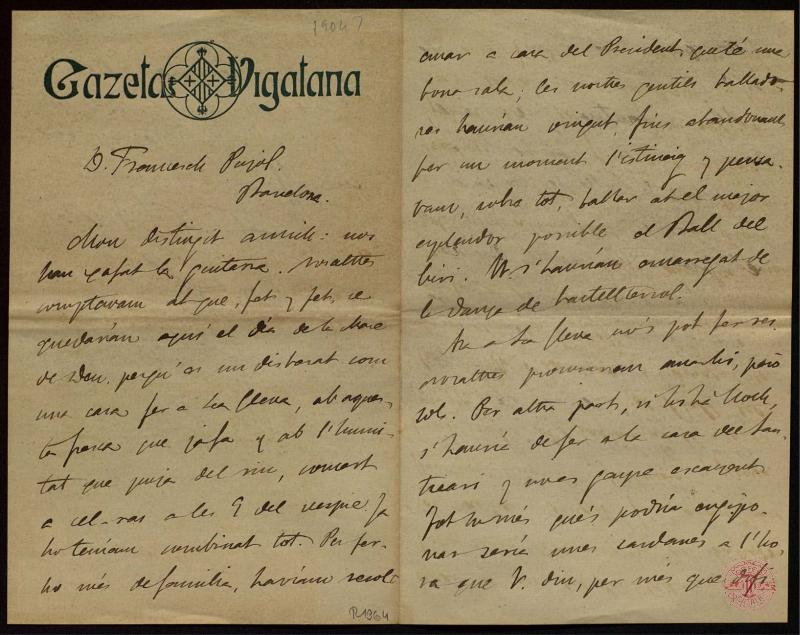 1904?
Gazeta Vigatana
D. Francesch Pujol.
Barcelona.
Mon distingit amich: nos
han xafat la guitarra. Nosaltres
comptavam ab que, fet y fet, se
quedarían aquí el día de la Mare
de Deu, perqué es un disbarat com
una casa fer a La Gleva, ab aques-
ta fresca que ja fa y ab l'humi-
tat que puja del riu, concert
a cel-ras a les 9 del vespre. Ja
ho teníam combinat tot. Per fer-
ho més de familia, havíam resolt
anar a casa del President, que té una
bona sala; les nostres gentils ballado-
res haurían vingut, fins abandonant
per un moment l'estiueig y pensa-
vam, sobre tot, ballar ab el major
esplendor possible el Ball del
Ciri. Vs. s'haurían encarregat de
la dança de Castelltersol.
Ara a La Gleva no's pot fer res.
Nosaltres procurarem anar-hi, però
sols. Per altra part, si hi há lloch,
s'hauría de fer a la casa del San-
tuari y no es gayre escayent.
Tot lo més qué's podría
nar sería unes sardanes a l'ho-
ra que V. diu, per més que
R1964